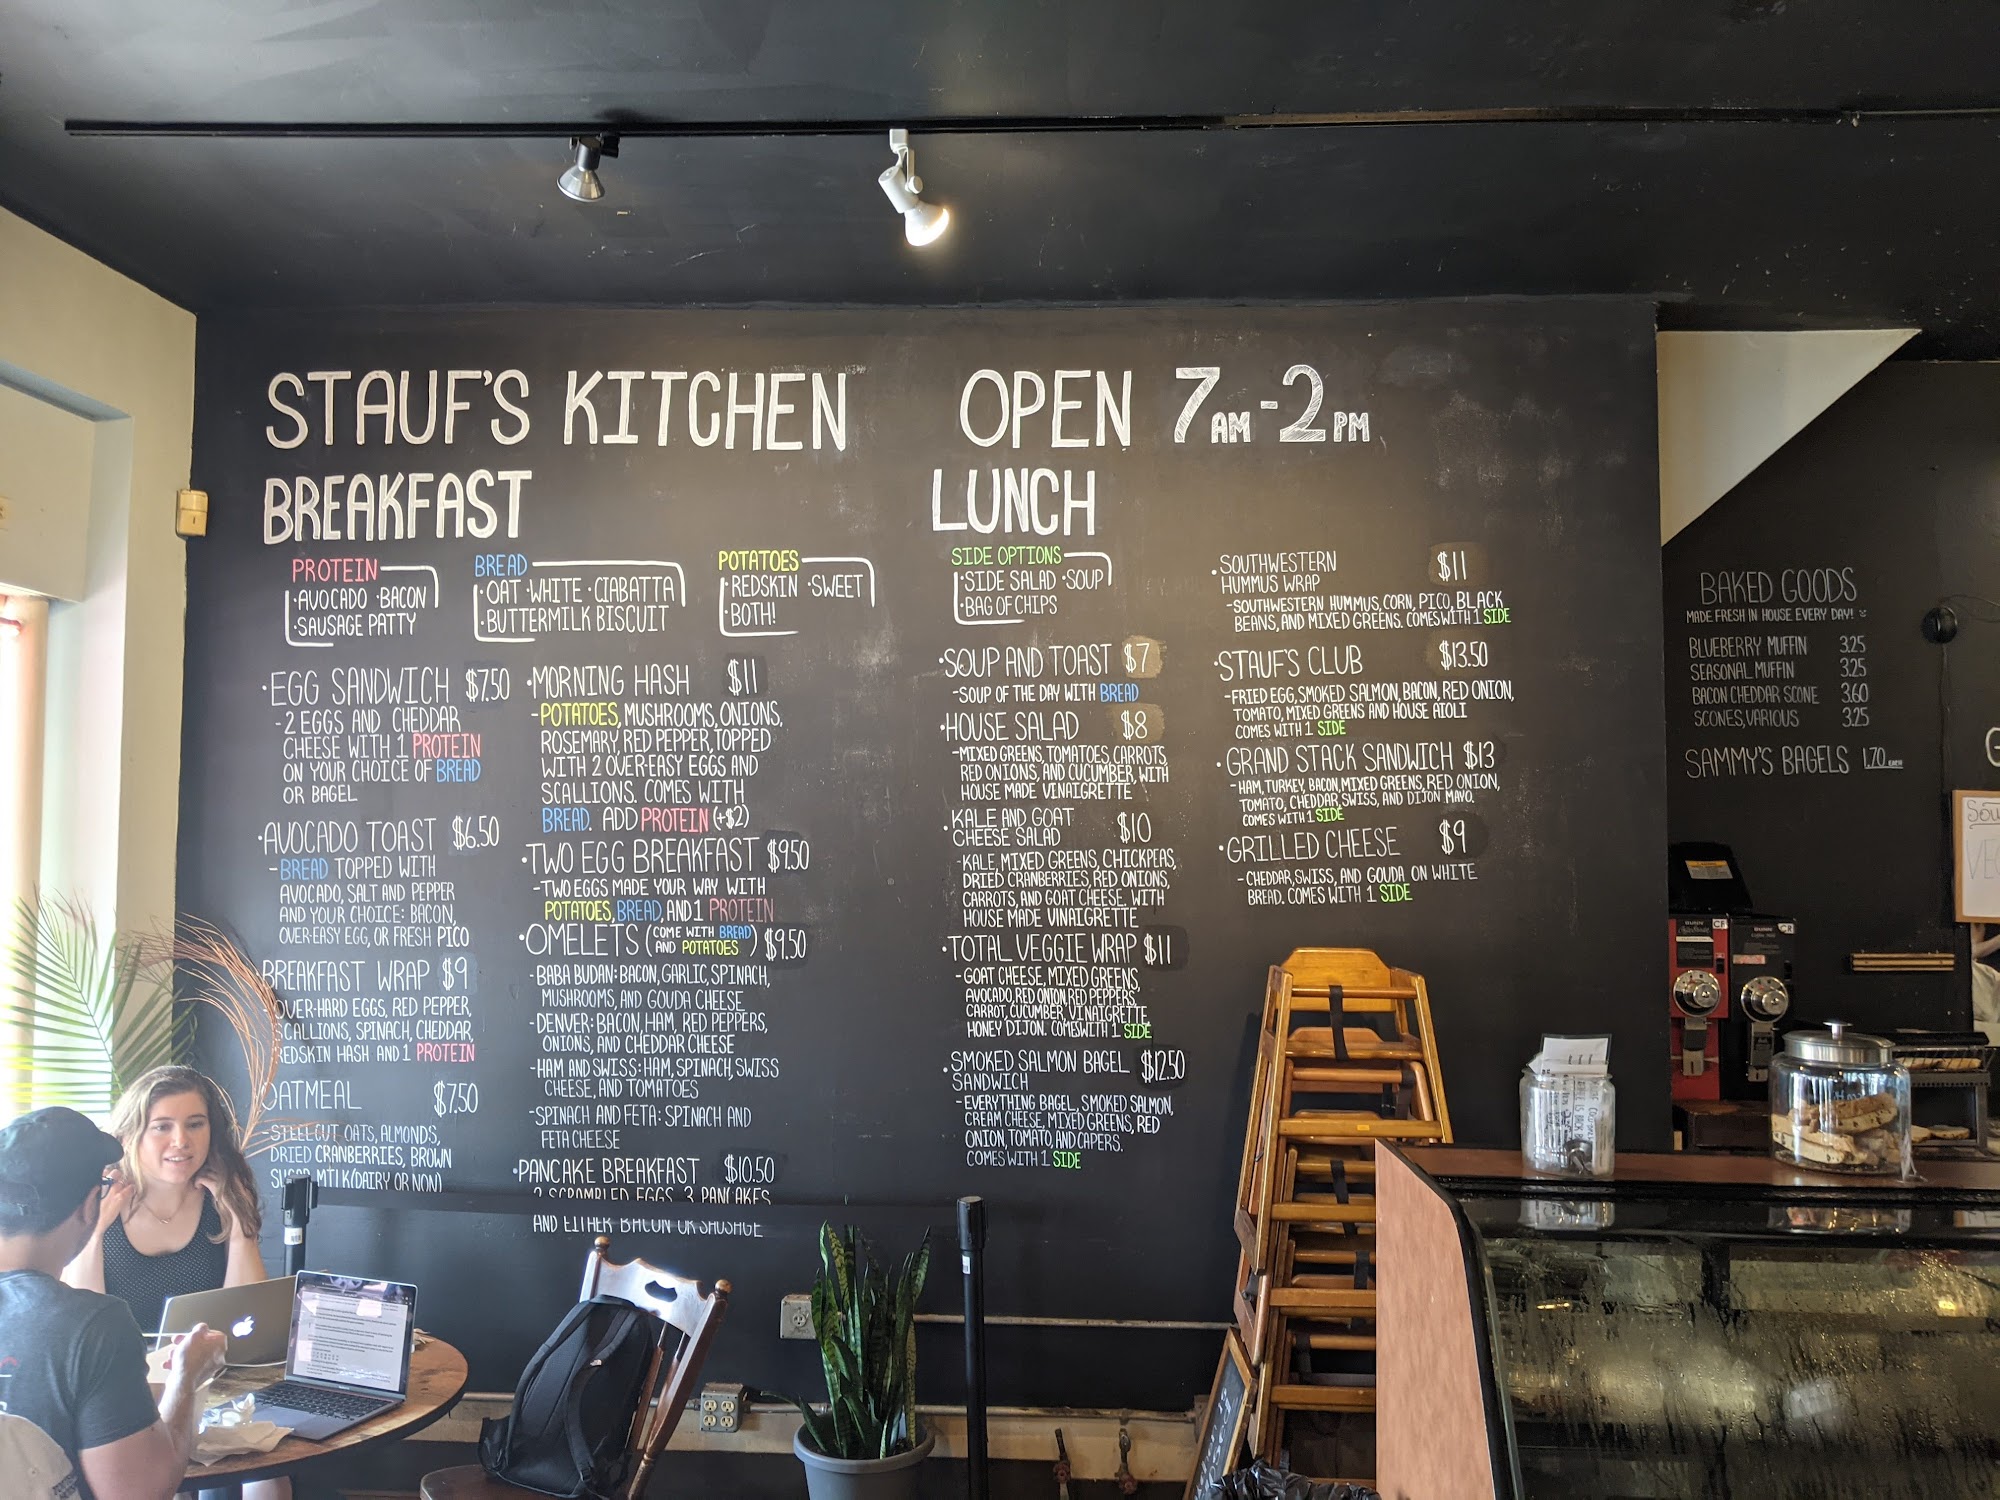 STAUF'S KITCHEN
OPEN 7AM-2PM
BREAKFAST
PROTEIN
·AVOCADO ·BACON
·SAUSAGE PATTY
BREAD
·OAT ·WHITE ·CIABATTA
·BUTTERMILK BISCUIT
POTATOES
·REDSKIN ·SWEET
·BOTH!
·EGG SANDWICH $7.50
-2 EGGS AND CHEDDAR
CHEESE WITH 1 PROTEIN
ON YOUR CHOICE OF BREAD
OR BAGEL
·AVOCADO TOAST $6.50
-BREAD TOPPED WITH
AVOCADO, SALT AND PEPPER
AND YOUR CHOICE: BACON,
OVER-EASY EGG, OR FRESH PICO
BREAKFAST WRAP $9
OVER-HARD EGGS, RED PEPPER,
SCALLIONS, SPINACH, CHEDDAR,
REDSKIN HASH AND 1 PROTEIN
OATMEAL $7.50
-STEELCUT OATS, ALMONDS,
DRIED CRANBERRIES, BROWN
SUGAR, MILK (DAIRY OR NON)
·MORNING HASH $11
-POTATOES, MUSHROOMS, ONIONS,
ROSEMARY, RED PEPPER, TOPPED
WITH 2 OVER-EASY EGGS AND
SCALLIONS. COMES WITH
BREAD. ADD PROTEIN (+$2)
·TWO EGG BREAKFAST $9.50
-TWO EGGS MADE YOUR WAY WITH
POTATOES, BREAD, AND 1 PROTEIN
·OMELETS (COME WITH BREAD AND POTATOES) $9.50
-BABA BUDAN: BACON, GARLIC, SPINACH,
MUSHROOMS, AND GOUDA CHEESE
-DENVER: BACON, HAM, RED PEPPERS,
ONIONS, AND CHEDDAR CHEESE
-HAM AND SWISS: HAM, SPINACH, SWISS
CHEESE, AND TOMATOES
-SPINACH AND FETA: SPINACH AND
FETA CHEESE
·PANCAKE BREAKFAST $10.50
2 SCRAMBLED EGGS, 3 PANCAKES
AND EITHER BACON OR SAUSAGE
LUNCH
SIDE OPTIONS
·SIDE SALAD ·SOUP
·BAG OF CHIPS
·SOUP AND TOAST $7
-SOUP OF THE DAY WITH BREAD
·HOUSE SALAD $8
-MIXED GREENS, TOMATOES, CARROTS,
RED ONIONS, AND CUCUMBER, WITH
HOUSE MADE VINAIGRETTE
·KALE AND GOAT
CHEESE SALAD $10
-KALE, MIXED GREENS, CHICKPEAS,
DRIED CRANBERRIES, RED ONIONS,
CARROTS, AND GOAT CHEESE, WITH
HOUSE MADE VINAIGRETTE
·TOTAL VEGGIE WRAP $11
-GOAT CHEESE, MIXED GREENS,
AVOCADO, RED ONION, RED PEPPERS,
CARROT, CUCUMBER, VINAIGRETTE,
HONEY DIJON. COMES WITH 1 SIDE
·SMOKED SALMON BAGEL $12.50
SANDWICH
-EVERYTHING BAGEL, SMOKED SALMON,
CREAM CHEESE, MIXED GREENS, RED
ONION, TOMATO, AND CAPERS.
COMES WITH 1 SIDE
·SOUTHWESTERN
HUMMUS WRAP $11
-SOUTHWESTERN HUMMUS, CORN, PICO, BLACK
BEANS, AND MIXED GREENS. COMES WITH 1 SIDE
·STAUF'S CLUB $13.50
-FRIED EGG, SMOKED SALMON, BACON, RED ONION,
TOMATO, MIXED GREENS AND HOUSE AIOLI
COMES WITH 1 SIDE
·GRAND STACK SANDWICH $13
-HAM, TURKEY, BACON, MIXED GREENS, RED ONION,
TOMATO, CHEDDAR, SWISS, AND DIJON MAYO.
COMES WITH 1 SIDE
·GRILLED CHEESE $9
-CHEDDAR, SWISS, AND GOUDA ON WHITE
BREAD. COMES WITH 1 SIDE
BAKED GOODS
MADE FRESH IN HOUSE EVERY DAY!
BLUEBERRY MUFFIN 3.25
SEASONAL MUFFIN 3.25
BACON CHEDDAR SCONE 3.60
SCONES, VARIOUS 3.25
SAMMY'S BAGELS 1.70 EACH
CF
CR